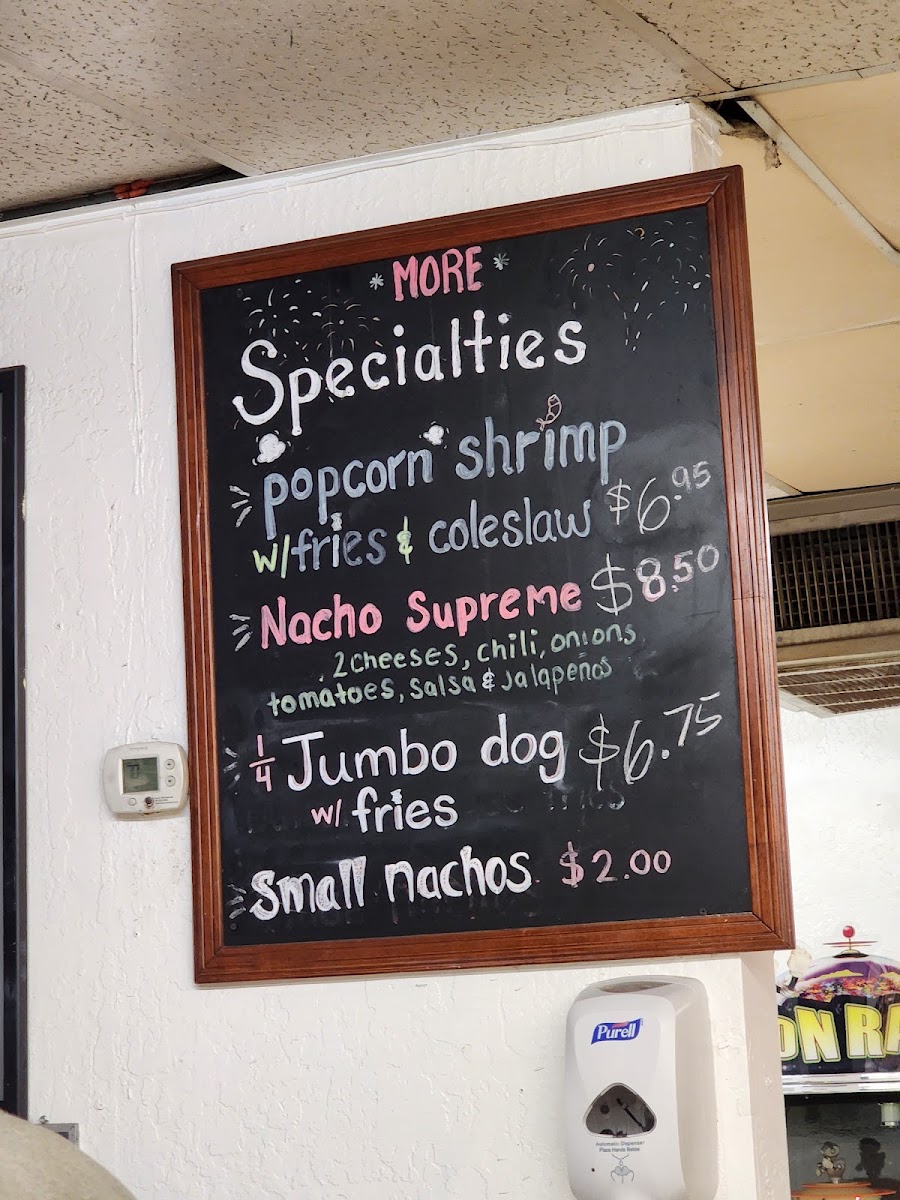 * MORE *
Specialties
popcorn shrimp
w/fries & coleslaw $6.95
Nacho Supreme $8.50
2 cheeses, chili, onions
tomatoes, salsa & Jalapeños
1/4 Jumbo dog $6.75
w/ fries
Small nachos $2.00
Purell
Automatic Dispenser
Place Hands Below
ON RA